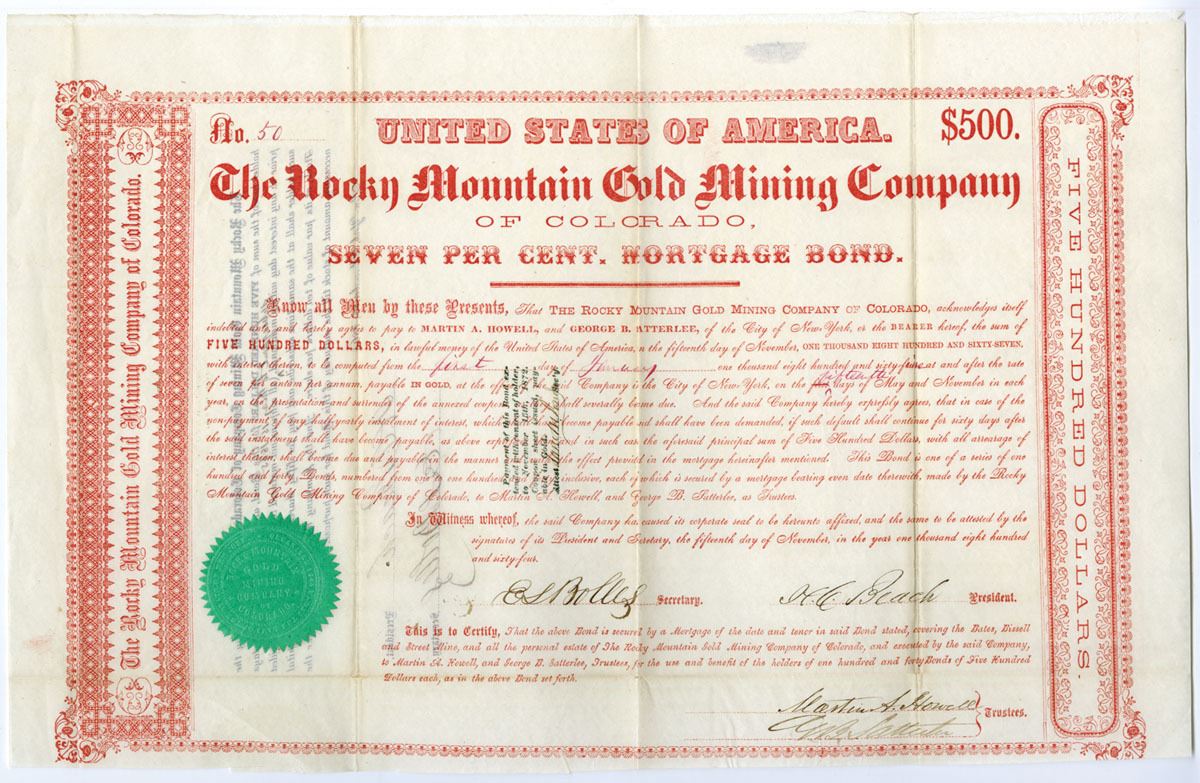 No. 50
UNITED STATES OF AMERICA.
$500.
The Rocky Mountain Gold Mining Company
OF COLORADO,
SEVEN PER CENT. MORTGAGE BOND.
Know all Men by these Presents, That THE ROCKY MOUNTAIN GOLD MINING COMPANY OF COLORADO, acknowledges itself
indebted unto, and hereby agrees to pay to MARTIN A. HOWELL, and GEORGE B. SATTERLEE, of the City of New York, or the BEARER hereof, the sum of
FIVE HUNDRED DOLLARS, in lawful money of the United States of America, on the fifteenth day of November, ONE THOUSAND EIGHT HUNDRED AND SIXTY-SEVEN,
with interest thereon, to be computed from the first day of January one thousand eight hundred and sixty-five at and after the rate
of seven per centum per annum, payable IN GOLD, at the office of the said Company in the City of New York, on the fifteenth days of May and November in each
year, on the presentation and surrender of the annexed coupons as they shall severally become due. And the said Company hereby expressly agrees, that in case of the
non-payment of any half-yearly instalment of interest, which shall have become payable and shall have been demanded, if such default shall continue for sixty days after
the said instalment shall have become payable, as above expressed, then and in such case the aforesaid principal sum of Five Hundred Dollars, with all arrearage of
interest thereon, shall become due and payable in the manner and with the effect provided in the mortgage hereinafter mentioned. This Bond is one of a series of one
hundred and forty Bonds, numbered from one to one hundred and forty inclusive, each of which is secured by a mortgage bearing even date therewith, made by the Rocky
Mountain Gold Mining Company of Colorado, to Martin A. Howell, and George B. Satterlee, as Trustees.
Payment of this Bond ex-
tended with consent of holder,
to November 15th, 1872.
Coupon sheet added, pay-
able in Gold.
Attest
In Witness whereof, the said Company has caused its corporate seal to be hereunto affixed, and the same to be attested by the
signatures of its President and Secretary, the fifteenth day of November, in the year one thousand eight hundred
and sixty-four.
E S Bolles Secretary. H C Beach President.
This is to Certify, That the above Bond is secured by a Mortgage of the date and tenor in said Bond stated, covering the Bates, Bissell
and Street Mine, and all the personal estate of The Rocky Mountain Gold Mining Company of Colorado, and executed by the said Company,
to Martin A. Howell, and George B. Satterlee, Trustees, for the use and benefit of the holders of one hundred and forty Bonds of Five Hundred
Dollars each, as in the above Bond set forth.
Martin A. Howell
Geo. B. Satterlee
Trustees.
The Rocky Mountain Gold Mining Company of Colorado.
FIVE HUNDRED DOLLARS.
ROCKY MOUNTAIN
GOLD
MINING
COMPANY
COLORADO